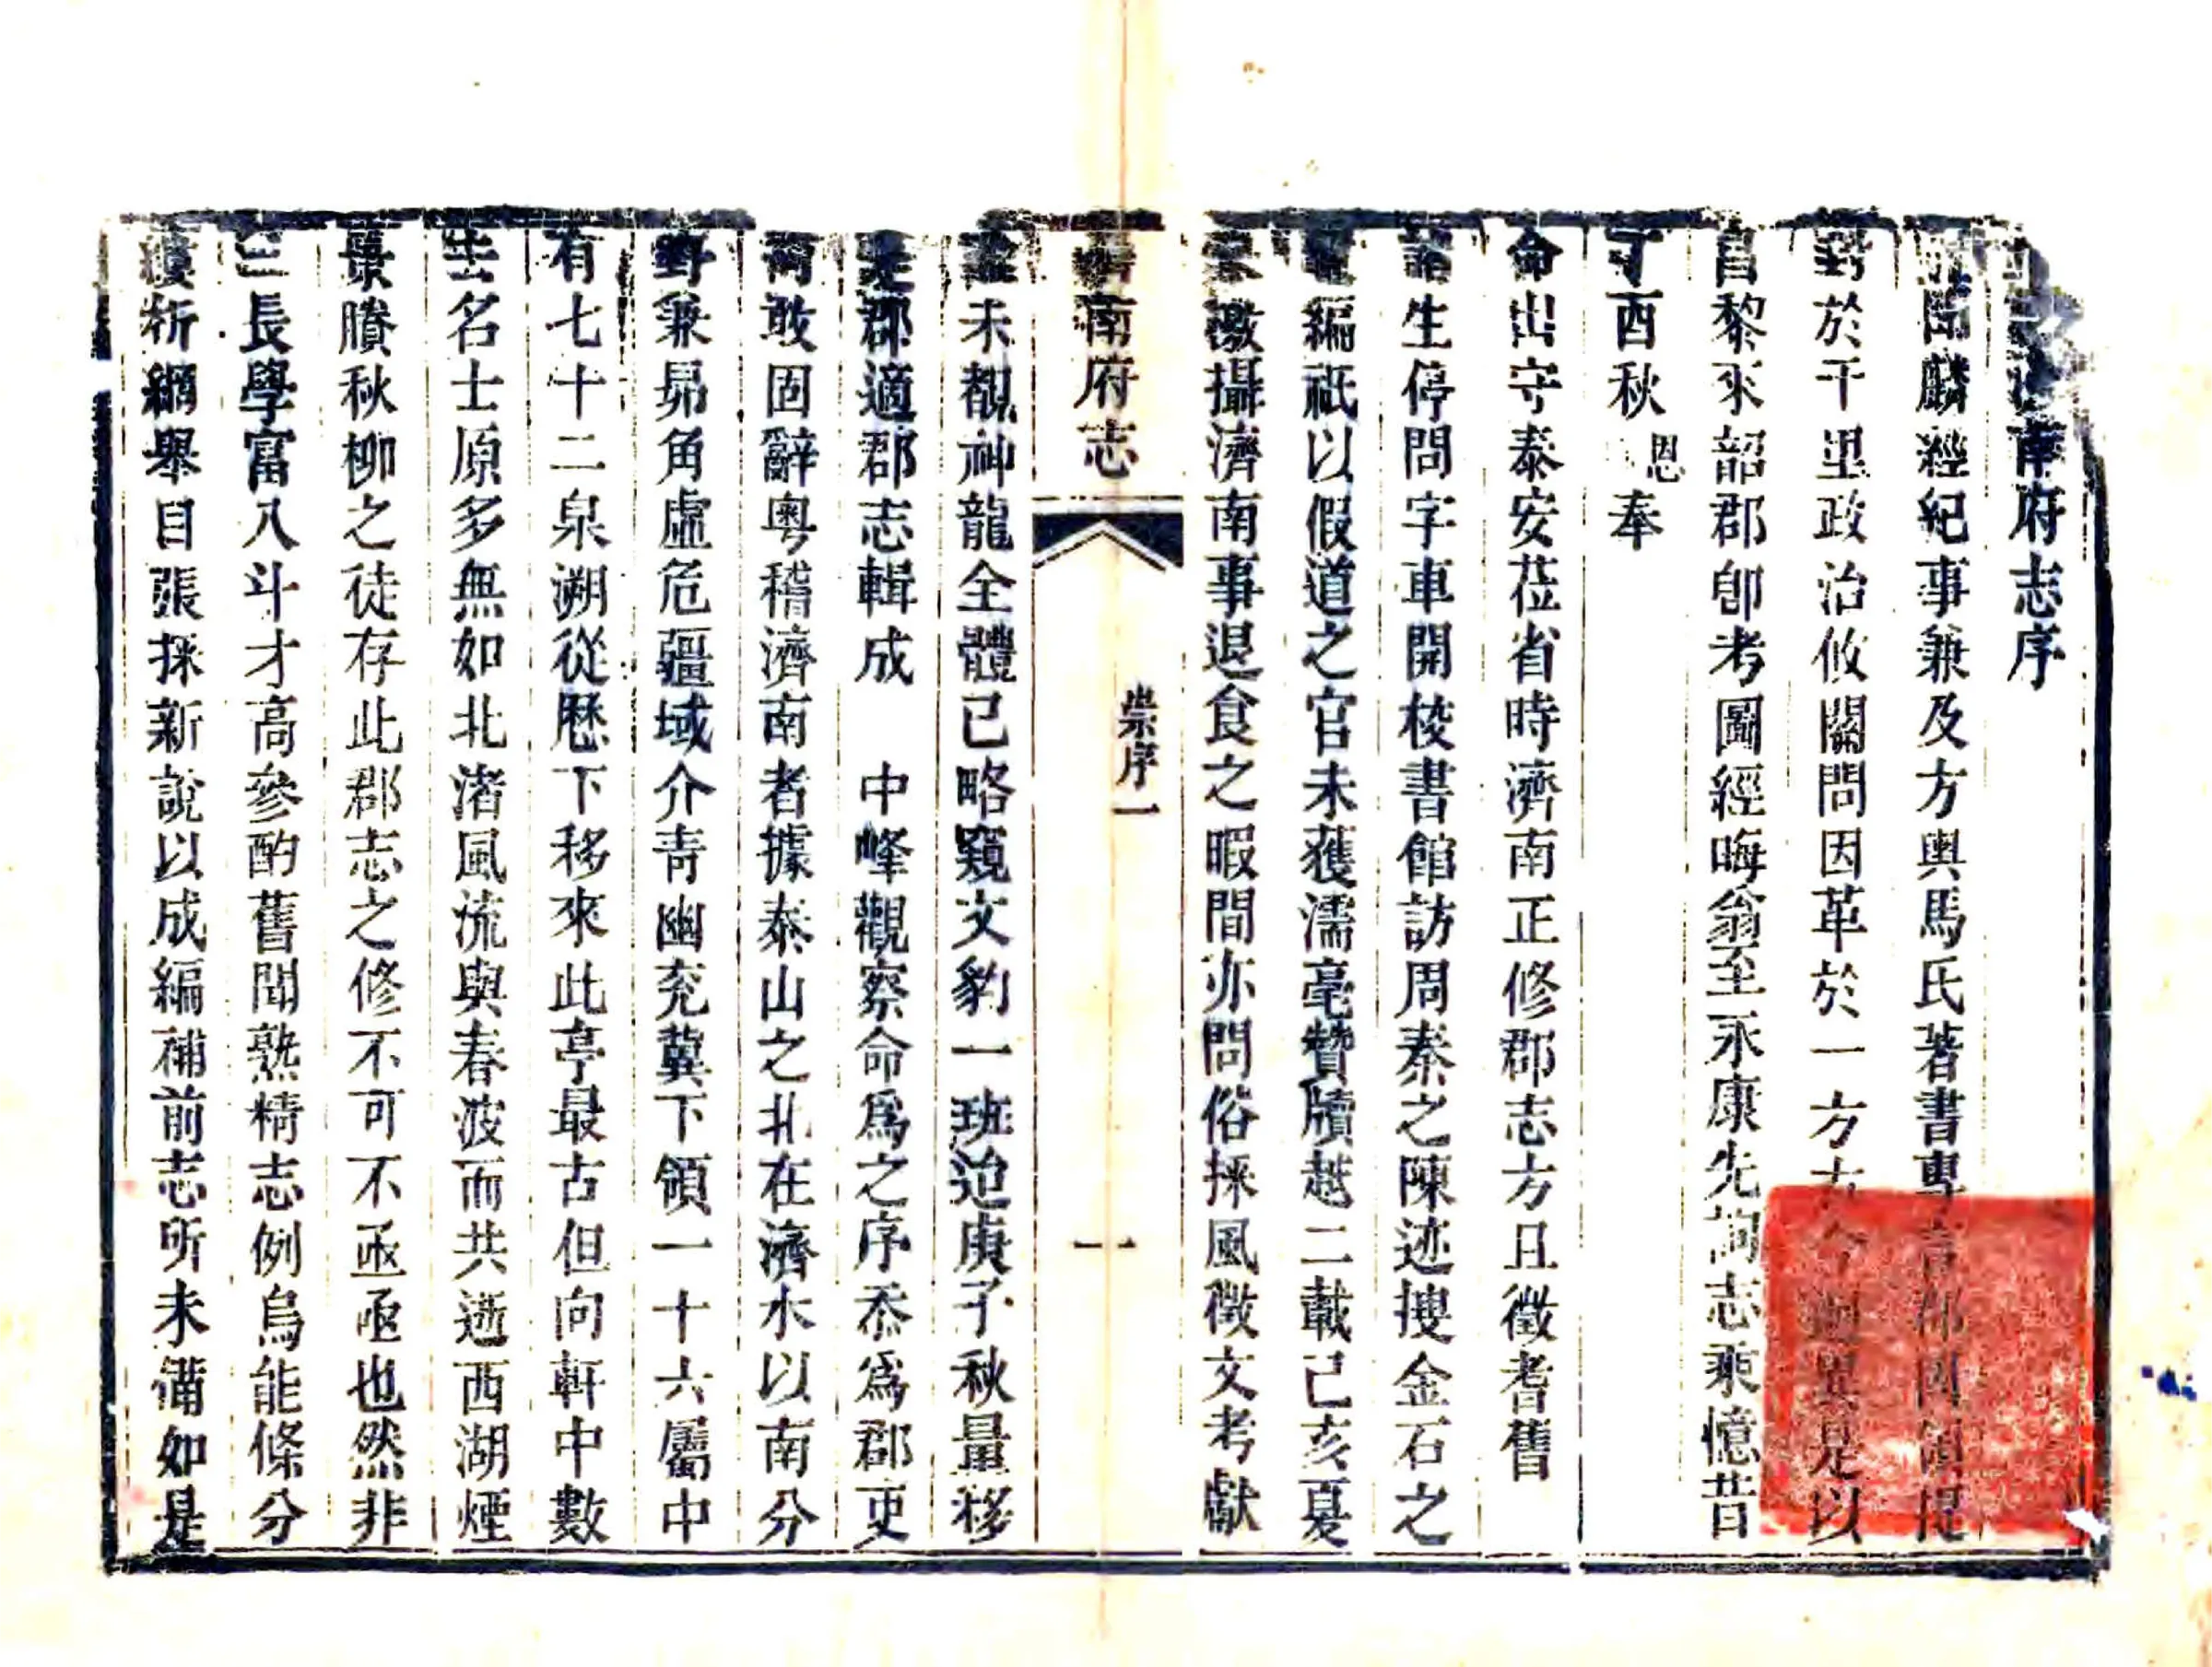 南府志序
聞麟經紀事兼及方輿馬氏著書專言郡國領提
於千里政治攸關問因革於一方古今異是以
自黎來韶郡卽考圖經晦翁至永康先詢志乘憶昔
丁酉秋恩奉
命出守泰安莅省時濟南正修郡志方且徵耆舊
諸生停問字車開校書館訪周秦之陳迹搜金石之
編祇以假道之官未獲濡毫贊牘越二載己亥夏
檄攝濟南事退食之暇間亦問俗採風徵文考獻
未覩神龍全體已略窺文豹一斑迨庚子秋量移
是郡適郡志輯成 中峰觀察命爲之序忝爲郡吏
何敢固辭粵稽濟南者據泰山之北在濟水以南分
野兼昴角虛危疆域介青幽兖冀下領一十六屬中
有七十二泉溯從歷下移來此亭最古但向軒中數
去名士原多無如北渚風流與春波而共逝西湖煙
景賸秋柳之徒存此郡志之修不可不亟亟也然非
三長學富八斗才高參酌舊聞熟精志例烏能條分
縷析綱舉目張採新說以成編補前志所未備如是
濟南府志
崇序一
一